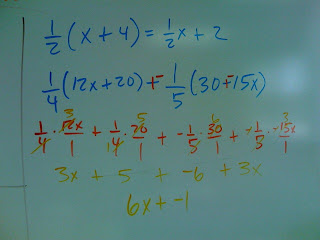 1/2 (x + 4) = 1/2 x + 2
1/4 (12x + 20) + - 1/5 (30 + -15x)
1/4 · 12x/1 + 1/4 · 20/1 + - 1/5 · 30/1 + - 1/5 · -15x/1
3x + 5 + -6 + 3x
6x + -1